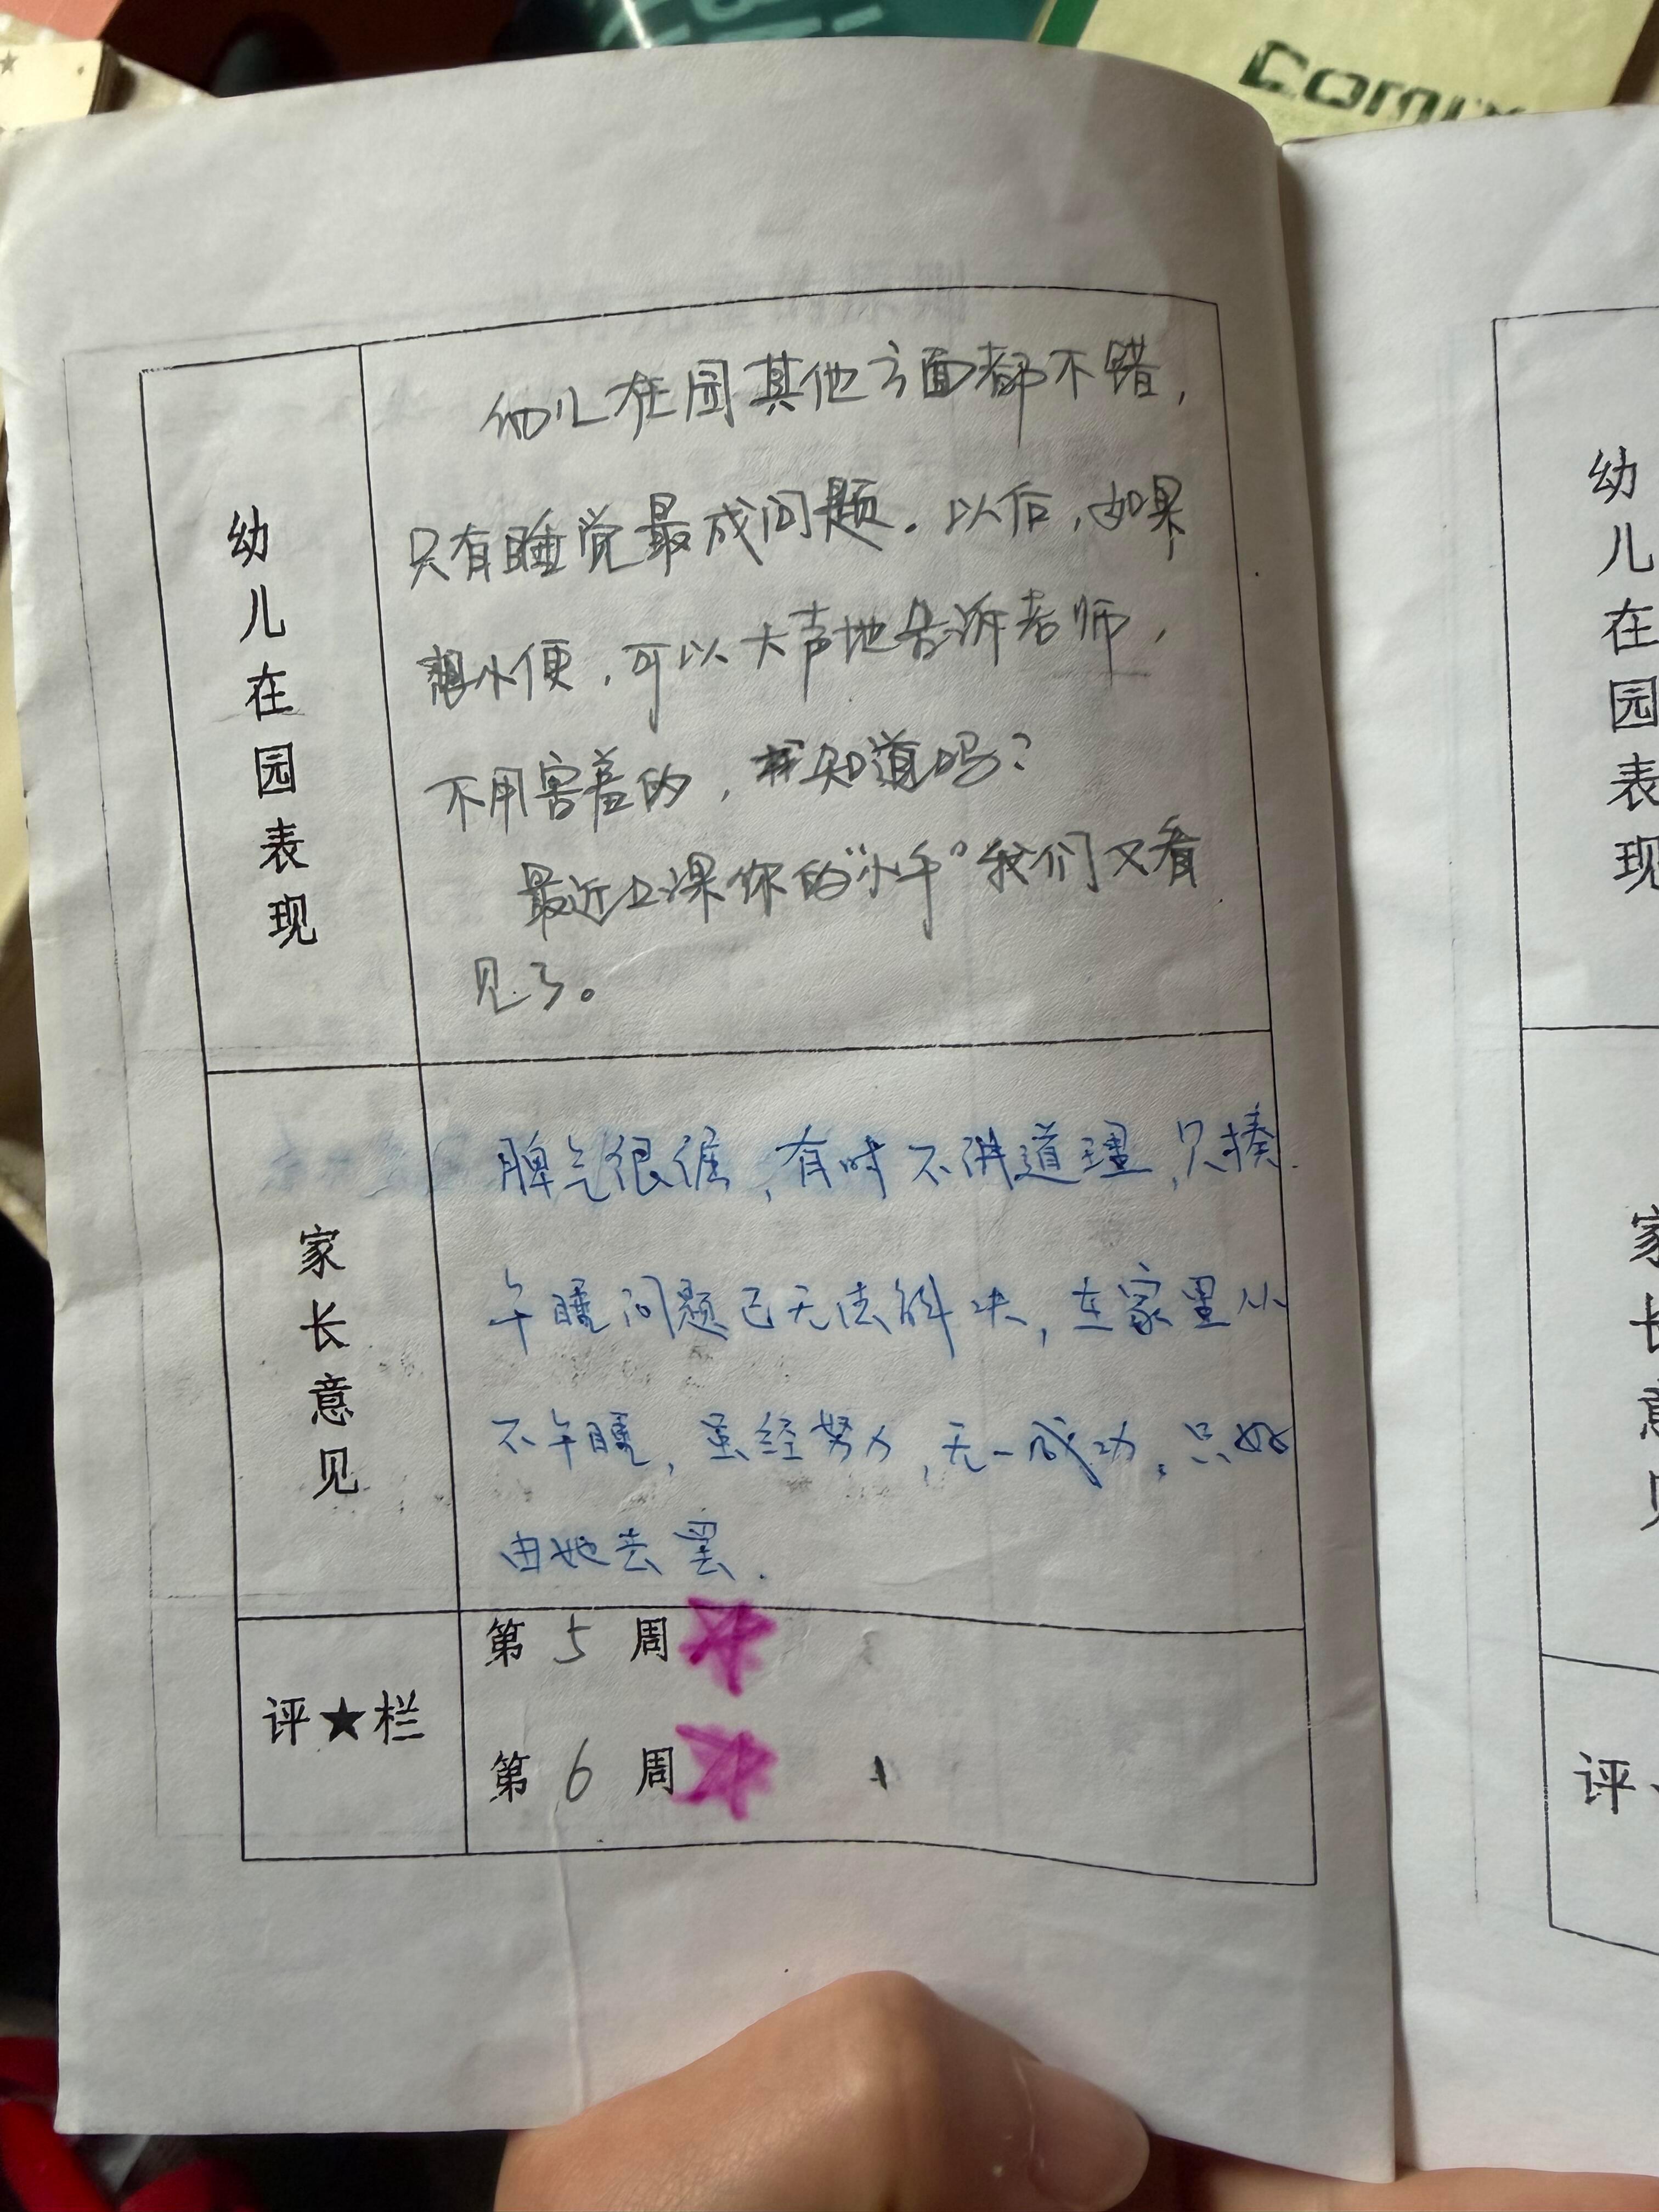 comix
幼儿在园表现
幼儿在园其他方面都不错，
只有睡觉最成问题。以后，如果
想小便，可以大声地告诉老师，
不用害羞的，知道吗？
最近上课你的“小手”我们又看
见了。
家长意见
脾气很倔，有时不讲道理，只揍.
午睡问题已无法解决，在家里从
不午睡，虽经努力，无一成功。只好
由她去罢.
评★栏
第 5 周
第 6 周
幼儿在园表现
家长意见
评